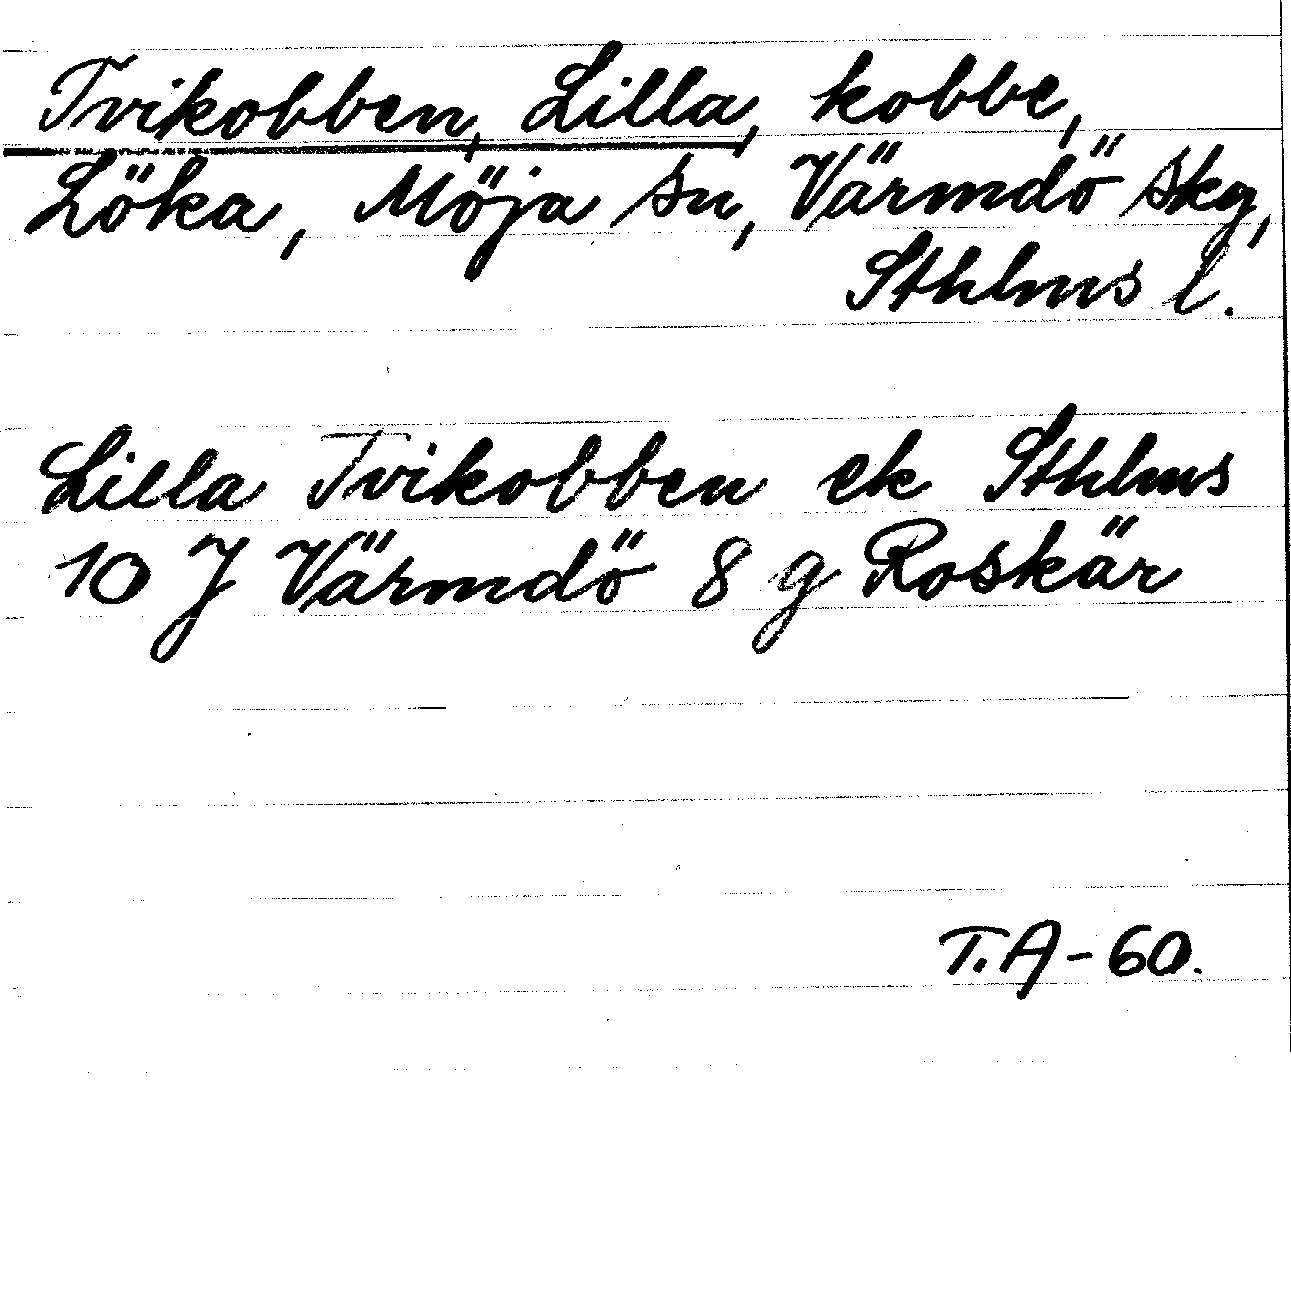 Tvikobben, Lilla, kobbe,
Löka, Möja sn, Värmdö skg,
Sthlms l.
Lilla Tvikobben ek Sthlms
10 J Värmdö 8 g Roskär
T.A-60.